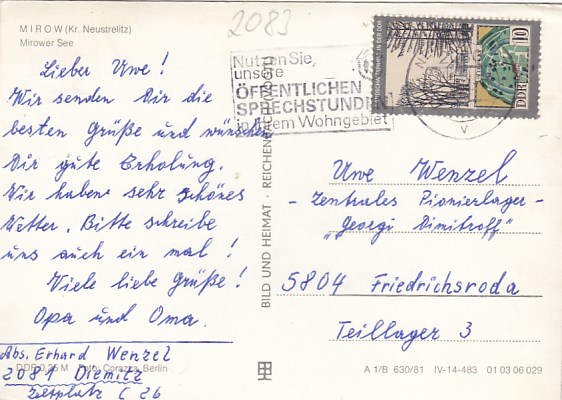 2083
MIROW (Kr. Neustrelitz)
Mirower See
Lieber Uwe!
Wir senden Dir die
besten Grüße und wünschen
Dir gute Erholung.
Wir haben sehr schönes
Wetter. Bitte schreibe
uns auch ein mal!
Viele liebe Grüße!
Opa und Oma.
Abs. Erhard Wenzel
2081 Diemitz
Zeltplatz C 26
DDR 0,25 M Foto: Corazza, Berlin
BILD UND HEIMAT · REICHENBACH (VOGTL)
Nutzen Sie,
unsere
ÖFFENTLICHEN
SPRECHSTUNDEN
in Ihrem Wohngebiet
10
DDR
Uwe Wenzel
- Zentrales Pionierlager -
"Georgi Dimitroff"
5804 Friedrichsroda
Teillager 3
A 1/B 630/81 IV-14-483 01 03 06 029